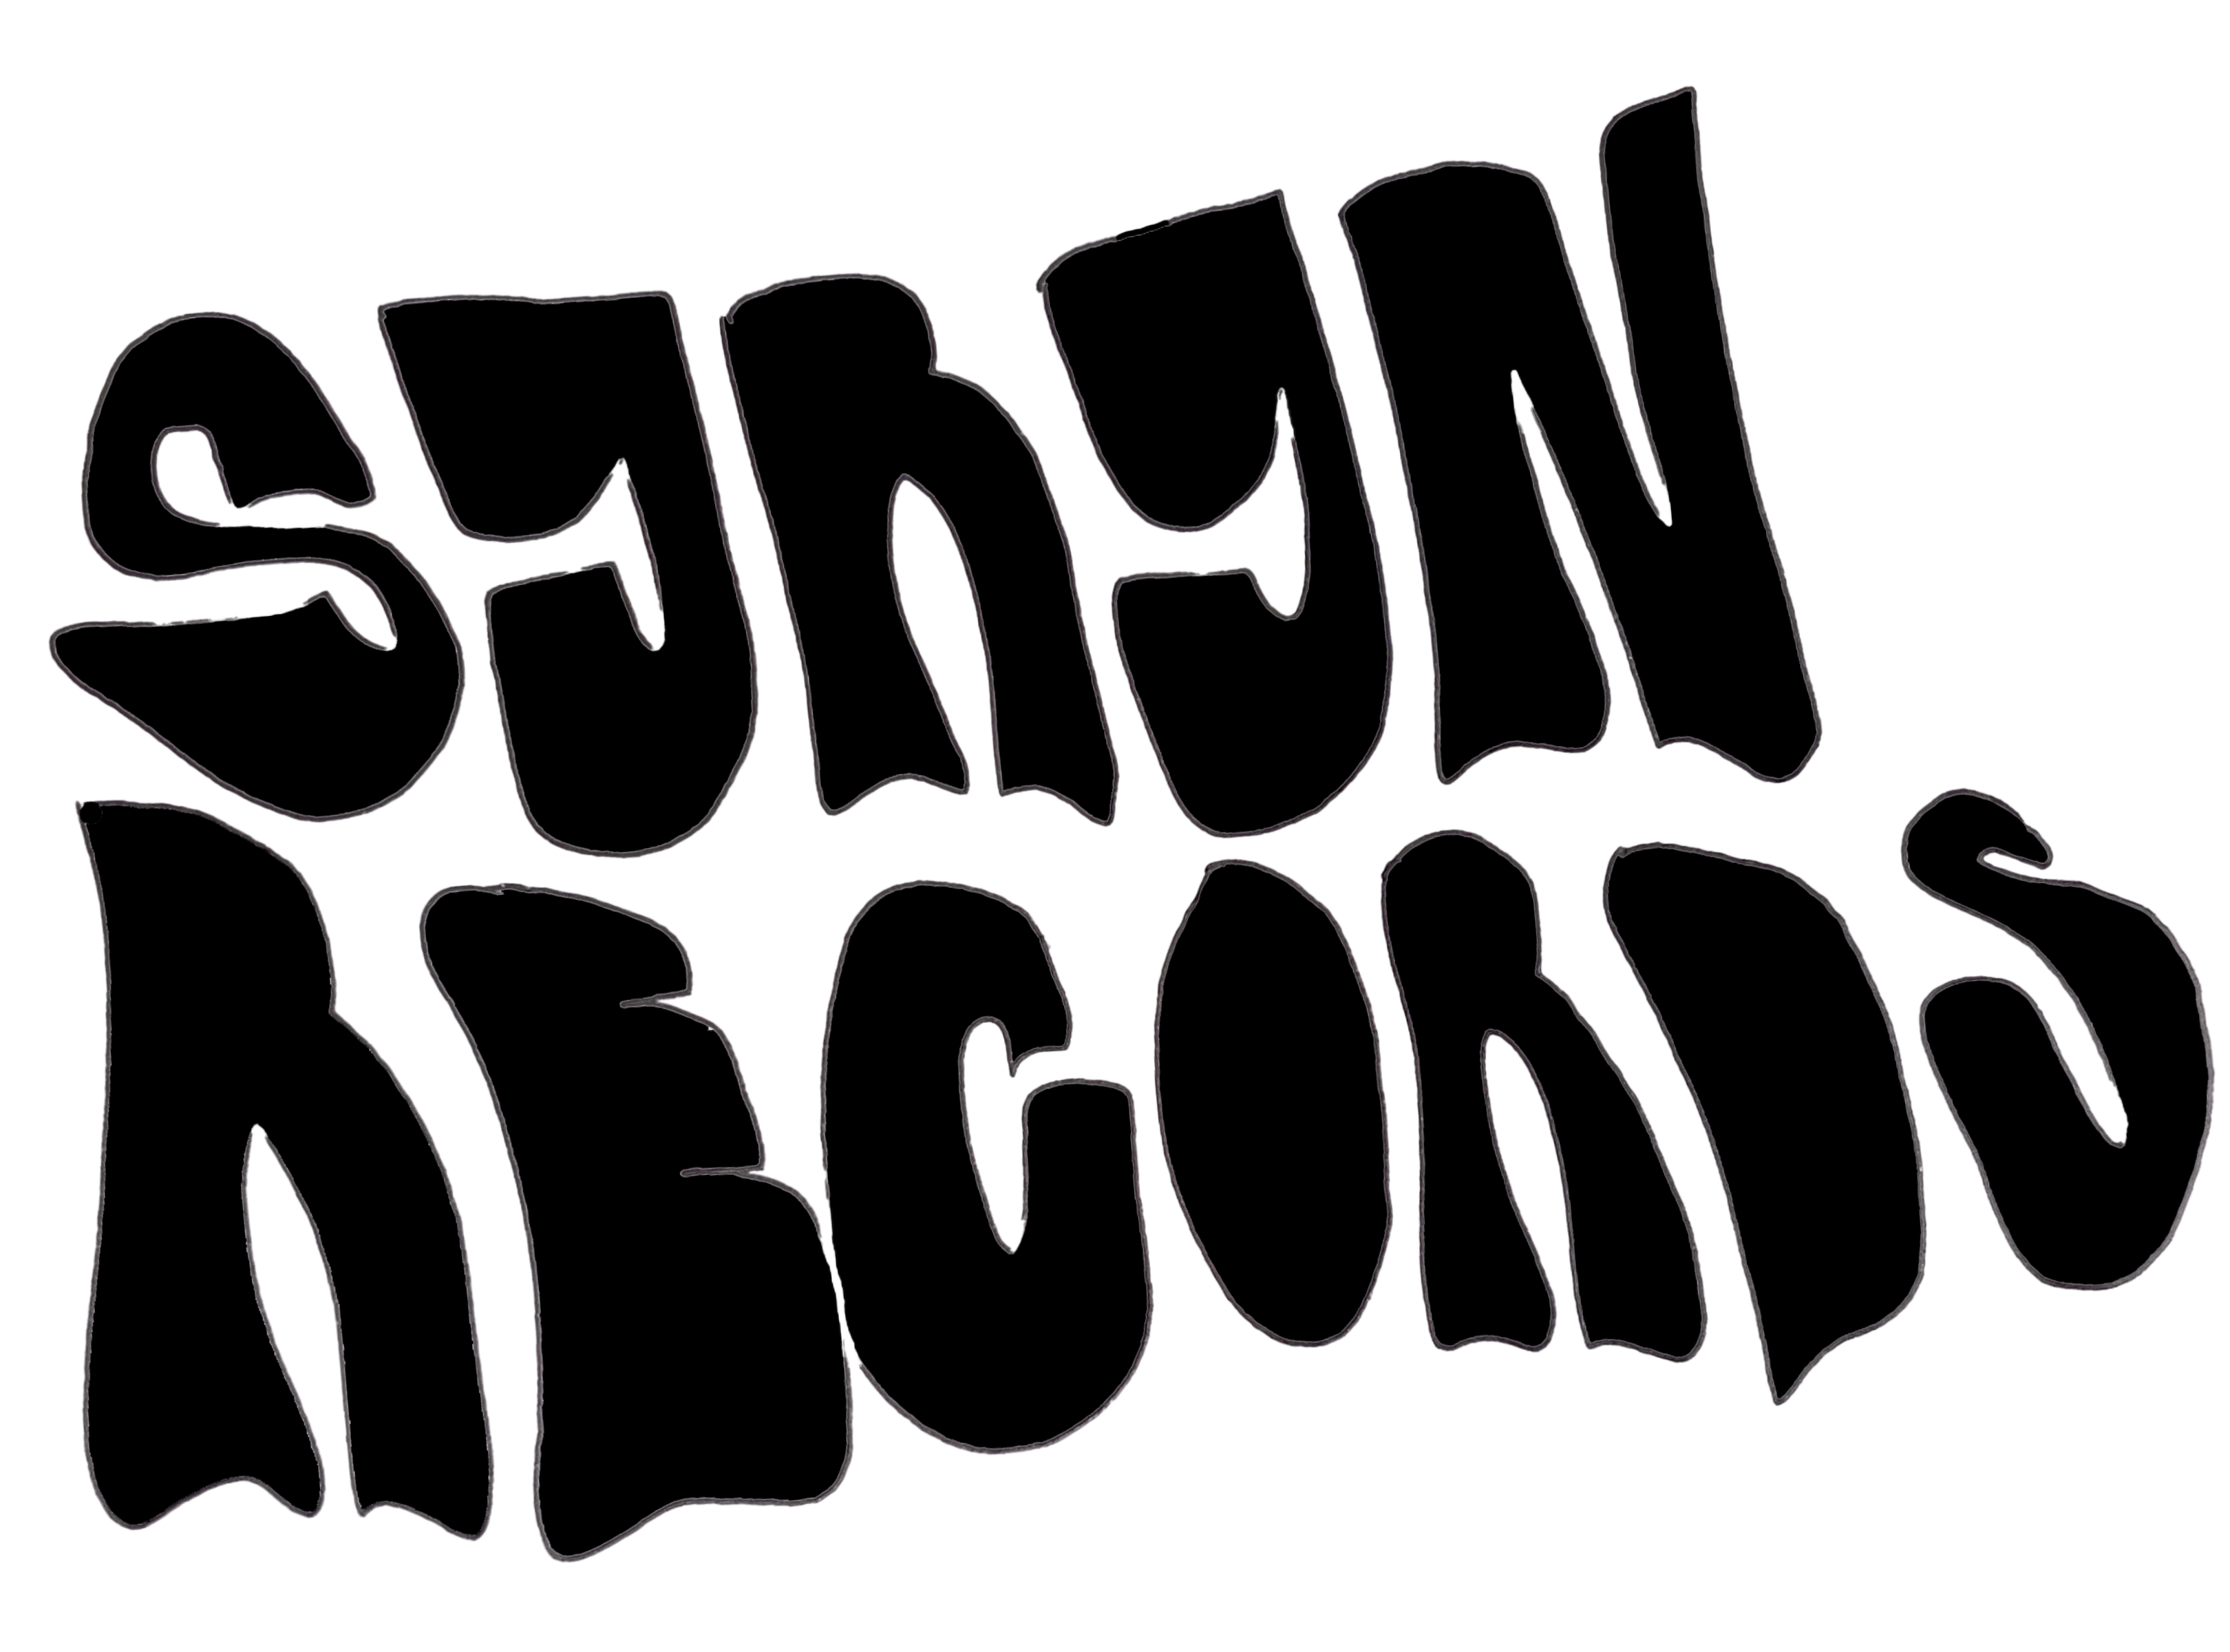 SYRYN
RECORDS